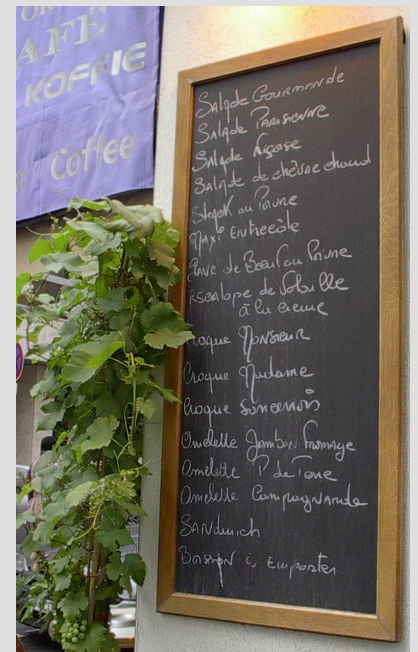 AFÉ
KOFFIE
Coffee
Salade Gourmande
Salade Parisienne
Salade Niçoise
Salade de chèvre chaud
Steak au Poivre
Maxi Entrecôte
Pavé de Boeuf au Poivre
Escalope de Volaille
à la crème
Croque Monsieur
Croque Madame
Croque
Omelette Jambon Fromage
Omelette P. de Terre
Omelette Campagnarde
Sandwich
Boisson à Emporter